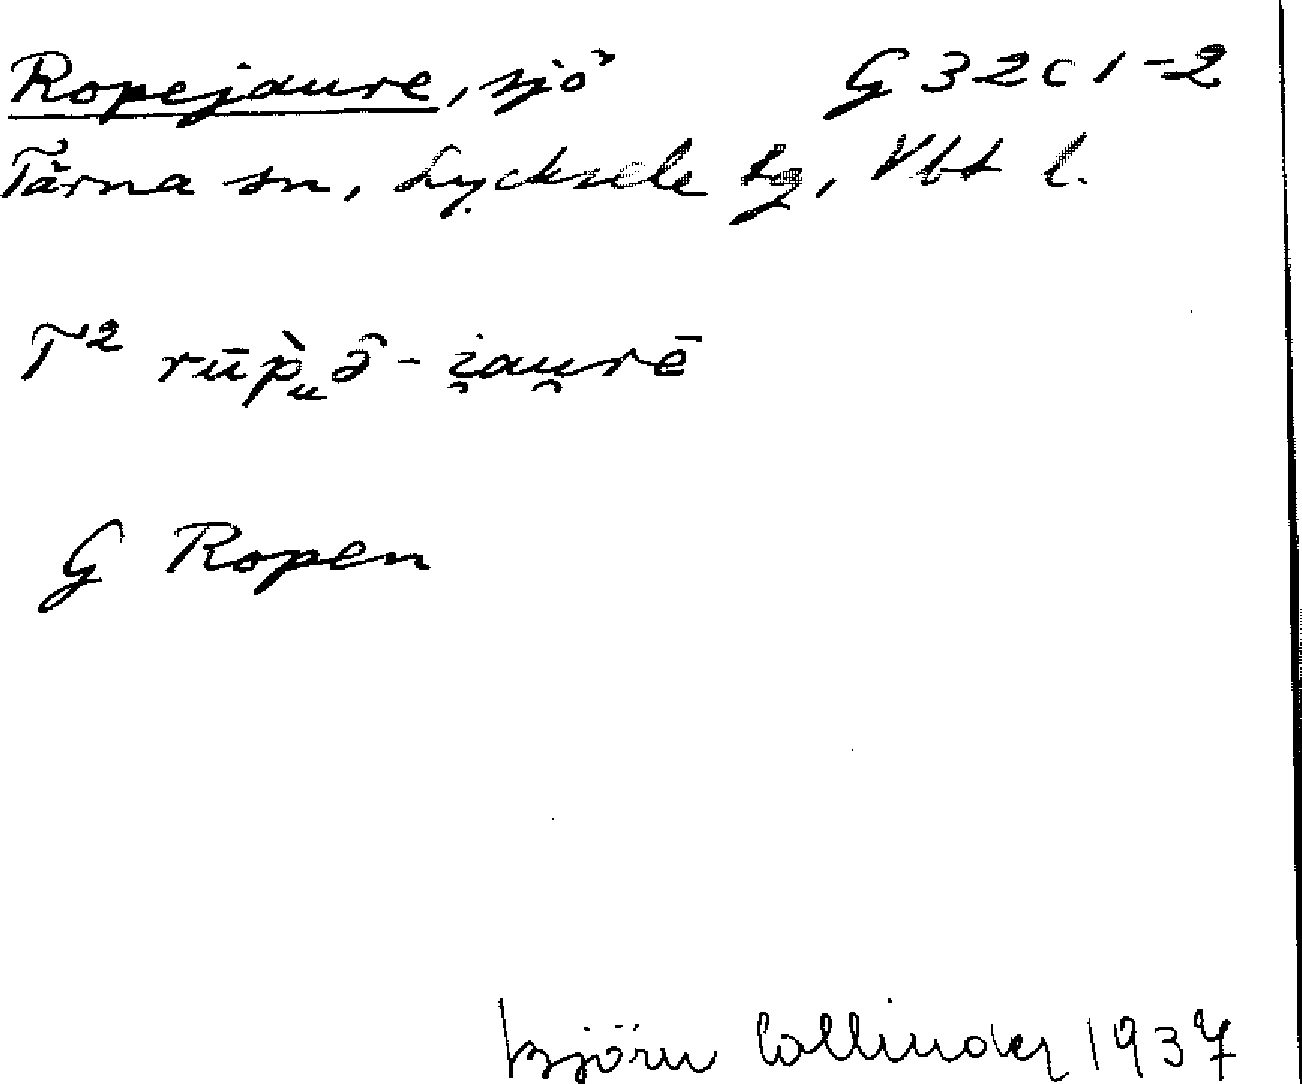 Ropejaure, sjö G 32 c 1-2
Tärna sn, Lycksele lg, Vbt l.
T² rūp̀ᵤə̑ - i̯au̯rē
G Ropen
Björn Collinder 1937